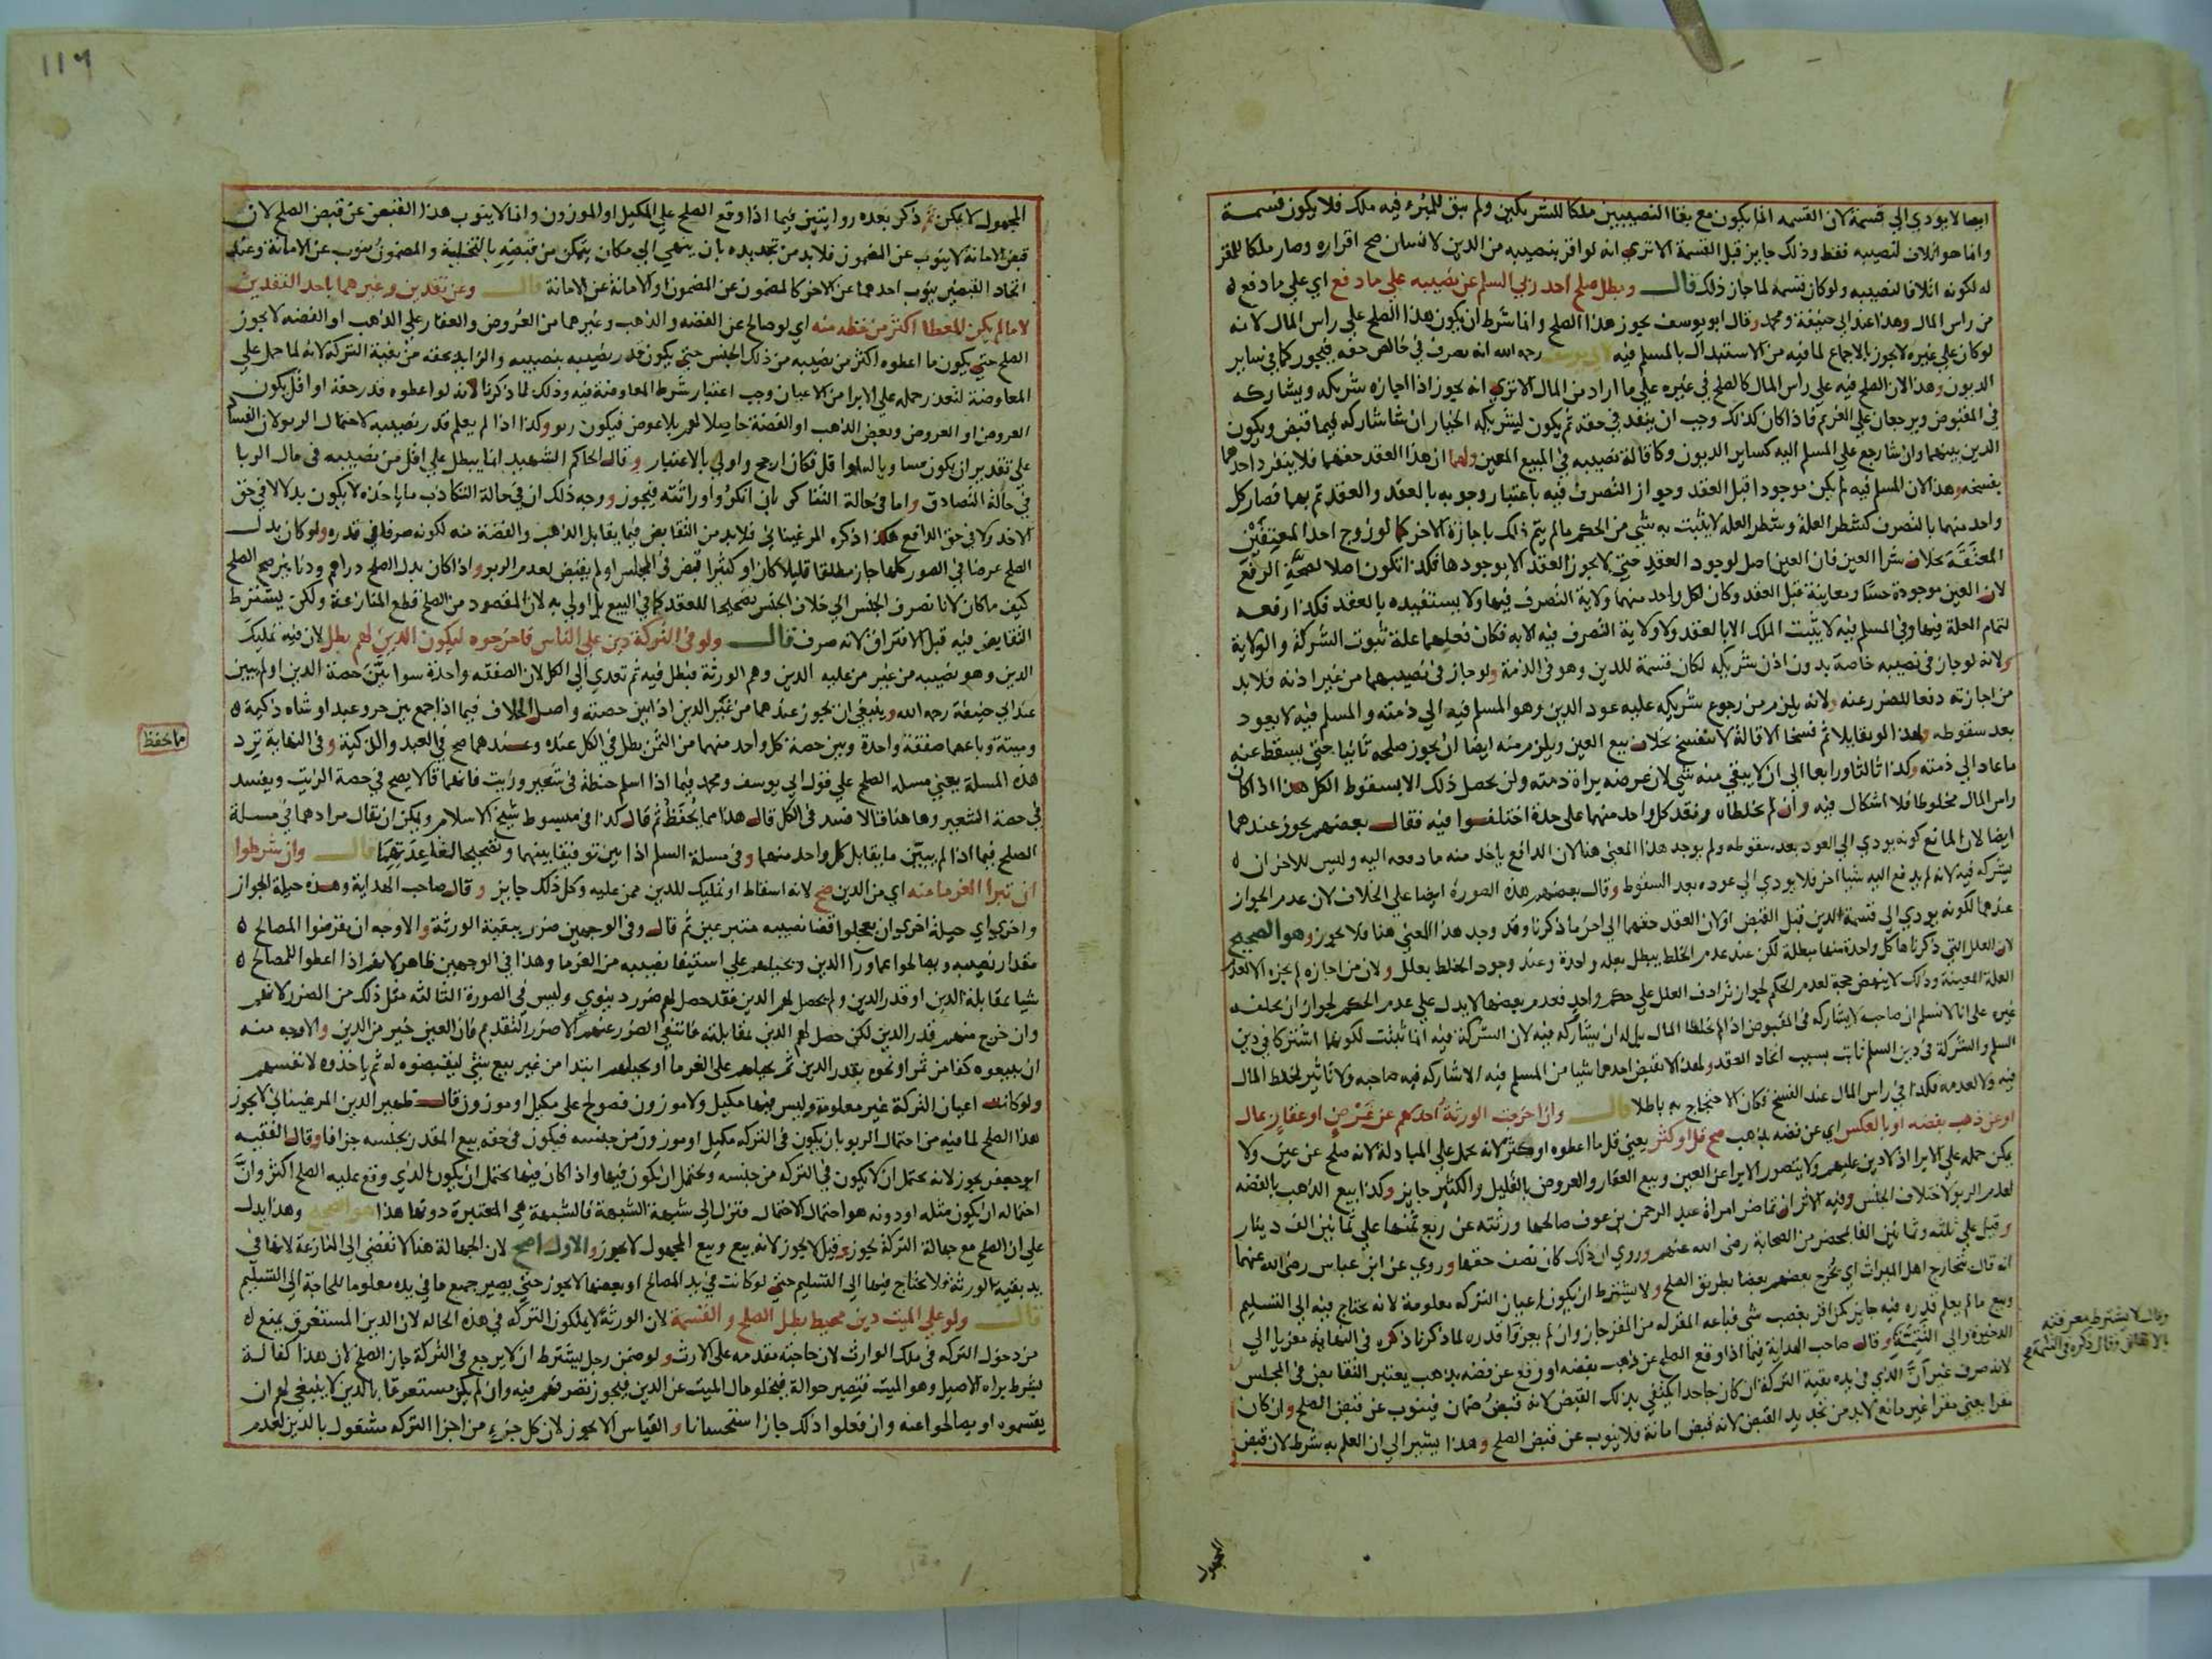 ايضا لا يودي الي قسمة لان القسمه انما يكون مع بقا النصيبين ملكا للشريكين ولم يبق للمبرء فيه ملك فلا يكون قسمة
وانما هو اتلاف لنصيبه فقط وذلك جايز قبل القسمة الا تري انه لو اقر بنصيبه من الدين لانسان صح اقراره وصار ملكا للمقر
له لكونه اتلافا لنصيبه ولو كان قسمة لما جاز ذلك قال وبطل صلح احد ربي السلم عن نصيبه علي ما دفع اي علي ما دفع
من راس المال وهذا عند ابي حنيفة ومحمد وقال ابو يوسف يجوز هذا الصلح وانما شرط ان يكون هذا الصلح علي راس المال لانه
لو كان علي غيره لا يجوز بالاجماع لما فيه من الاستبدال بالمسلم فيه لابي يوسف رحمه الله انه تصرف في خالص حقه فيجوز كما في ساير
الديون وهذا لان الصلح فيه علي راس المال كالصلح في غيره علي ما اراد من المال الا تري انه يجوز اذا اجازه شريكه ويشاركه
في المقبوض ويرجعان علي الغريم فاذا كان كذلك وجب ان ينفذ في حقه ثم يكون لشريكه الخيار ان شا شاركه فيما قبض ويكون
الدين بينهما وان شا رجع علي المسلم اليه كساير الديون وكاقالة نصيبه في المبيع المعين ولهما ان هذا العقد حقهما فلا ينفرد احدهما
بفسخه وهذا لان المسلم فيه لم يكن موجودا قبل العقد وجواز التصرف فيه باعتبار وجوبه بالعقد والعقد تم بهما فصار كل
واحد منهما بالتصرف كشطر العلة وشطر العلة لا يثبت به شي من الحكم ما لم يتم ذلك باجازة الاخر كما لو زوج احد المعتقين
المعتقة بخلاف شرا العين فان العين اصل لوجود العقد حتي لا يجوز العقد الا بوجودها فكذا تكون اصلا لصحة الرفع
لان العين موجودة حسا ومعاينة قبل العقد وكان لكل واحد منهما ولاية التصرف فيها ولا يستفيده بالعقد فكذا رفعه
لتمام العلة فيها وفي المسلم فيه لا يثبت الملك الا بالعقد ولا ولاية التصرف فيه الا به فكان فعلهما علة ثبوت الشركة والولاية
ولانه لو جاز في نصيبه خاصة بدون اذن شريكه لكان قسمة للدين وهو في الذمة ولو جاز في نصيبهما من غير اذنه فلا بد
من اجازته دفعا للضرر عنه ولانه يلزم من رجوع شريكه عليه عود الدين وهو المسلم فيه الي ذمته والمسلم فيه لا يعود
بعد سقوطه ولهذا لو تقايلا ثم فسخا الاقالة لا تنفسخ بخلاف بيع العين ويلزم منه ايضا ان يجوز صلحه ثانيا حتي يسقط عنه
ما عاد الي ذمته وكذا ثالثا ورابعا الي ان لا يبقي منه شي لان غرضه براة ذمته ولن يحصل ذلك الا بسقوط الكل هذا اذا كان
راس المال مخلوطا فلا اشكال فيه وان لم يخلطاه ونقد كل واحد منهما علي حدة اختلفوا فيه فقال بعضهم يجوز عندهما
ايضا لان المانع كونه يودي الي العود بعد سقوطه ولم يوجد هذا المعني هنا لان الدافع ياخذ منه ما دفعه اليه وليس للاخر ان
يشركه فيه لانه لم يدفع اليه شيا اخر فلا يودي الي عوده بعد السقوط وقال بعضهم هذه الصورة ايضا علي الخلاف لان عدم الجواز
عندهما لكونه يودي الي قسمة الدين قبل القبض اولان العقد حقهما الي اخر ما ذكرنا وقد وجد هذا المعني هنا فلا يجوز وهو الصحيح
لان العلل التي ذكرناها كل واحدة منها مبطلة لكن عند عدم الخلط يبطل بعلة واحدة وعند وجود الخلط بعلل ولان من اجازه لم يجزه الا لعدم
العلة المعينة وذلك لا ينهض حجة لعدم الحكم لجواز ترادف العلل علي حكم واحد فعدم بعضها لا يدل علي عدم الحكم لجواز ان يخلفه
غيره علي انا لا نسلم ان صاحبه لا يشاركه في المقبوض اذا لم يخلطا المال بل له ان يشاركه فيه لان الشركة فيه انما تثبت لكونهما اشتركا في دين
السلم والشركة في دين السلم ثابت بسبب اتحاد العقد ولهذا لا يقبض احدهما شيا من المسلم فيه الا شاركه فيه صاحبه ولا تاثير لخلط المال
فيه ولا لعدمه فكذا في راس المال عند الفسخ فكان الاحتجاج به باطلا قال وان اخرجت الورثة احدهم عن عرض او عقار بمال
او عن ذهب بفضه او بالعكس اي عن فضه بذهب صح قل او كثر يعني قل ما اعطوه او كثر لانه يحمل علي المبادلة لانه صلح عن عين ولا
يمكن حمله علي الابرا اذ لا دين عليهم ولا يتصور الابرا عن العين وبيع العقار والعروض بالقليل والكثير جايز وكذا بيع الذهب بالفضه
لعدم الربو لاختلاف الجنس وفيه الاثر ان تماضر امراة عبد الرحمن بن عوف صالحها ورثته عن ربع ثمنها علي ثمانين الف دينار
وقيل علي ثلثه وثمانين الفا بمحضر من الصحابة رضي الله عنهم وروي ان ذلك كان نصف حقها وروي عن ابن عباس رضي الله عنهما
انه قال يتخارج اهل الميراث اي يخرج بعضهم بعضا بطريق الصلح ولا يشترط ان يكون اعيان التركه معلومة لانه لا يحتاج فيه الي التسليم
وبيع ما لم يعلم قدره فيه جايز كمن اقر بغصب شي فباعه المقر له من المقر جاز وان لم يعرفا قدره لما ذكرنا ذكره في النهاية معزيا الي
الذخيرة والي التتمة وقال صاحب الهداية فيما اذا وقع الصلح عن ذهب بفضه او وقع عن فضه بذهب يعتبر التقابض في المجلس
لانه صرف غير ان الذي في يده بقية التركة ان كان جاحدا يكتفي بذلك القبض لانه قبض ضمان فينوب عن قبض الصلح وان كان
مقرا يعني مقرا غير مانع لا بد من تجديد القبض لانه قبض امانة فلا ينوب عن قبض الصلح وهذا يشير الي ان العلم به شرط لان قبض
وقال لا يشترط معرفته
المجهول
١١٦
المجهول لا يمكن ثم ذكر بعده روايتين فيما اذا وقع الصلح علي المكيل او الموزون وانما لا ينوب هذا القبض عن قبض الصلح لان
قبض الامانة لا ينوب عن المضمون فلا بد من تجديده بان ينتهي الي مكان يتمكن من قبضه بالتخلية والمضمون ينوب عن الامانة وعند
اتحاد القبضين ينوب احدهما عن الاخر كالمضمون عن المضمون او الامانة عن الامانة قال وعن نقدين وغيرهما باحد النقدين
لا ما لم يكن المعطا اكثر من حظه منه اي لو صالح عن الفضه والذهب وغيرهما من العروض والعقار علي الذهب او الفضه لا يجوز
الصلح حتي يكون ما اعطوه اكثر من نصيبه من ذلك الجنس حتي يكون قدر نصيبه بنصيبه والزايد بحقه من بقية التركه لانه لما حمل علي
المعاوضة لتعذر حمله علي الابرا من الاعيان وجب اعتبار شرط المعاوضة فيه وذلك لما ذكرنا لانه لو اعطوه قدر حقه او اقل يكون
العروض او العروض وبعض الذهب او الفضة حاصلا لهم بلا عوض فيكون ربو وكذا اذا لم يعلم قدر نصيبه لاحتمال الربو لان الفساد
علي تقدير ان يكون مساويا له او اقل فكان ارجح واولي بالاعتبار وقال الحاكم الشهيد انما يبطل علي اقل من نصيبه في مال الربا
في حالة التصادق واما في حالة التناكر بان انكروا وراثته فيجوز ووجه ذلك ان في حالة التكاذب ما ياخذه لا يكون بدلا لا في حق
الاخذ ولا في حق الدافع هكذا ذكره المرغيناني فلا بد من التقابض فيما يقابل الذهب والفضة منه لكونه صرفا في قدره ولو كان بدل
الصلح عرضا في الصور كلها جاز مطلقا قليلا كان او كثيرا قبض في المجلس او لم يقبض لعدم الربو واذا كان بدل الصلح دراهم ودنانير صح الصلح
كيف ما كان لانا نصرف الجنس الي خلاف الجنس تصحيحا للعقد كما في البيع بل اولي به لان المقصود من الصلح قطع المنازعة ولكن يشترط
التقابض فيه قبل الافتراق لانه صرف قال ولو في التركة دين علي الناس فاخرجوه ليكون الدين لهم بطل لان فيه تمليك
الدين وهو نصيبه من غير من عليه الدين وهم الورثة فبطل فيه ثم تعدي الي الكل لان الصفقه واحدة سوا بيّن حصة الدين او لم يبين
عند ابي حنيفة رحمه الله وينبغي ان يجوز عندهما من غير الدين اذا بين حصته واصل الخلاف فيما اذا جمع بين حر وعبد او شاه ذكية
وميتة وباعهما صفقة واحدة وبين حصة كل واحد منهما من الثمن بطل في الكل عنده وعندهما صح في العبد والذكية وفي النهاية ترد
هذه المسلة يعني مسلة الصلح علي قول ابي يوسف ومحمد فيما اذا اسلم حنطة في شعير وزيت فانهما قالا يصح في حصة الزيت ويفسد
في حصة الشعير وهاهنا قالا فسد في الكل قال هذا مما يحفظ ثم قال كذا في مبسوط شيخ الاسلام ويمكن ان يقال مرادهما في مسلة
الصلح فيما اذا لم يبين ما يقابل كل واحد منهما وفي مسلة السلم اذا بين توفيقا بينهما وتصحيحا لقاعدتهما قال وان شرطوا
ان تبرا الغرما منه اي من الدين صح لانه اسقاط او تمليك للدين ممن عليه وكل ذلك جايز وقال صاحب الهداية وهذه حيلة الجواز
واخري اي حيلة اخري ان يعجلوا قضا نصيبه متبرعين ثم قال وفي الوجهين ضرر ببقية الورثة والاوجه ان يقرضوا المصالح
مقدار نصيبه ويصالحوا عما ورآ الدين ويحيلهم علي استيفا نصيبه من الغرما وهذا في الوجهين ظاهر لانهم اذا اعطوا للمصالح
شيا بمقابلة الدين او قدر الدين ولم يحصل لهم الدين فقد حصل لهم ضرر دنيوي وليس في الصورة الثالثه مثل ذلك من الضرر لانهم
وان خرج منهم قدر الدين لكن حصل لهم الدين بمقابلته فانتفي الضرر عنهم الا ضرر التقديم فان العين خير من الدين والاوجه منه
ان يبيعوه كفا من تمر او نحوه بقدر الدين ثم يحيلهم علي الغرما او يحيلهم ابتدا من غير بيع شي ليقبضوه له ثم ياخذوه لانفسهم
ولو كانت اعيان التركة غير معلومة وليس فيها مكيل ولا موزون فصولح علي مكيل او موزون قال ظهير الدين المرغيناني لا يجوز
هذا الصلح لما فيه من احتمال الربو بان يكون في التركه مكيل او موزون من جنسه فيكون في حقه بيع المقدر بجنسه جزافا وقال الفقيه
ابو جعفر يجوز لانه يحتمل ان لا يكون في التركه من جنسه ويحتمل ان يكون فيها واذا كان فيها يحتمل ان يكون الذي وقع عليه الصلح اكثر وانّ
احتماله ان يكون مثله او دونه هو احتمال الاحتمال فتنزل الي شبهة الشبهة فالشبهة هي المعتبرة دونها هذا هو الصحيح وهذا يدل
علي ان الصلح مع جهالة التركة يجوز وقيل لا يجوز لانه بيع وبيع المجهول لا يجوز والاول اصح لان الجهالة هنا لا تفضي الي المنازعة لانها في
يد بقية الورثة ولا يحتاج فيها الي التسليم حتي لو كانت في يد المصالح او بعضها لا يجوز حتي يصير جميع ما في يده معلوما للحاجة الي التسليم
قال ولو علي الميت دين محيط بطل الصلح والقسمة لان الورثة لا يملكون التركه في هذه الحاله لان الدين المستغرق يمنع
من دخول التركه في ملك الوارث لان حاجته مقدمه علي الارث ولو ضمن رجل بشرط ان لا يرجع في التركة جاز الصلح لان هذا كفالة
بشرط براة الاصيل وهو الميت فتصير حوالة فيخلو مال الميت عن الدين فيجوز تصرفهم فيه وان لم يكن مستغرقا بالدين لا ينبغي لهم ان
يقتسموه او يصالحوا عنه وان فعلوا ذلك جاز استحسانا والقياس الا يجوز لان كل جزء من اجزا التركه مشغول بالدين لعدم
ما يحفظ